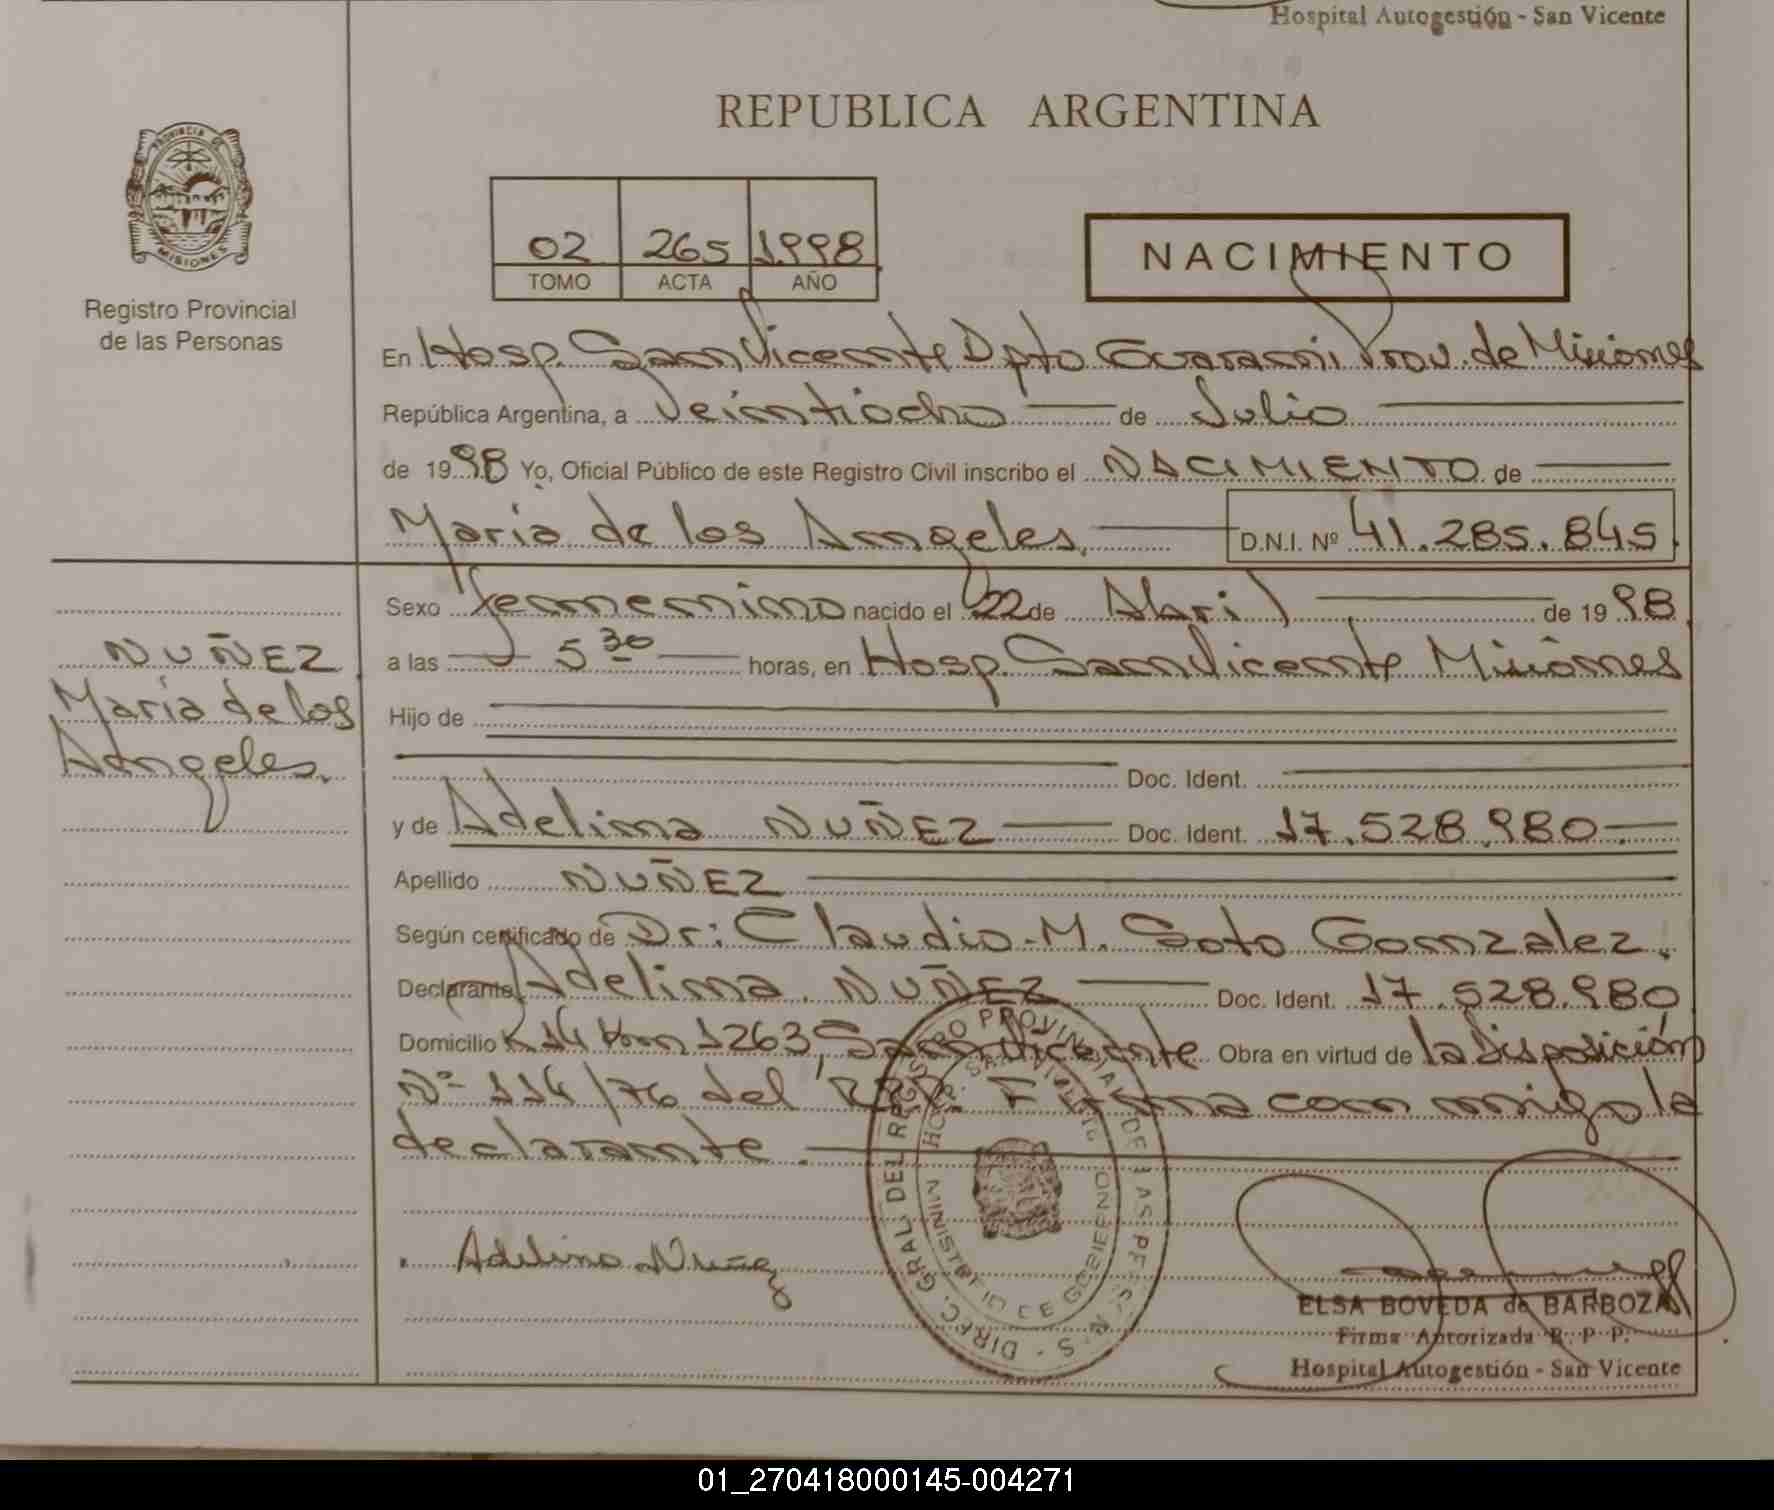 Hospital Autogestión - San Vicente
REPUBLICA ARGENTINA
PROVINCIA DE
MISIONES
Registro Provincial
de las Personas
02 265 1998
TOMO ACTA AÑO
NACIMIENTO
En Hosp. San Vicente Dpto Guarani Prov. de Misiones
República Argentina, a Veintiocho de Julio
de 1998 Yo, Oficial Público de este Registro Civil inscribo el NACIMIENTO de
Maria de los Angeles D.N.I. Nº 41.285.845
Sexo femenino nacido el 22 de Abril de 1998
a las 5 30 horas, en Hosp. San Vicente Misiones
Hijo de
Doc. Ident.
y de Adelina NUÑEZ Doc. Ident. 17.528.980
Apellido NUÑEZ
Según certificado de Dr: Claudio M. Soto Gonzalez.
Declarante Adelina NUÑEZ Doc. Ident. 17.528.980
Domicilio R 14 Km 1263, San Vicente Obra en virtud de la Disposición
Nº 114/76 del RPP. Firma con migo la
declarante.
NUÑEZ
María de los
Angeles.
Adelina Nuñez
DIREC. GRAL. DEL REGISTRO PROVINCIAL DE LAS PERSONAS
HOSP. SAN VICENTE
MINISTERIO DE GOBIERNO
ELSA BOVEDA de BARBOZA
Firma Autorizada R. P. P.
Hospital Autogestión - San Vicente
01_270418000145-004271